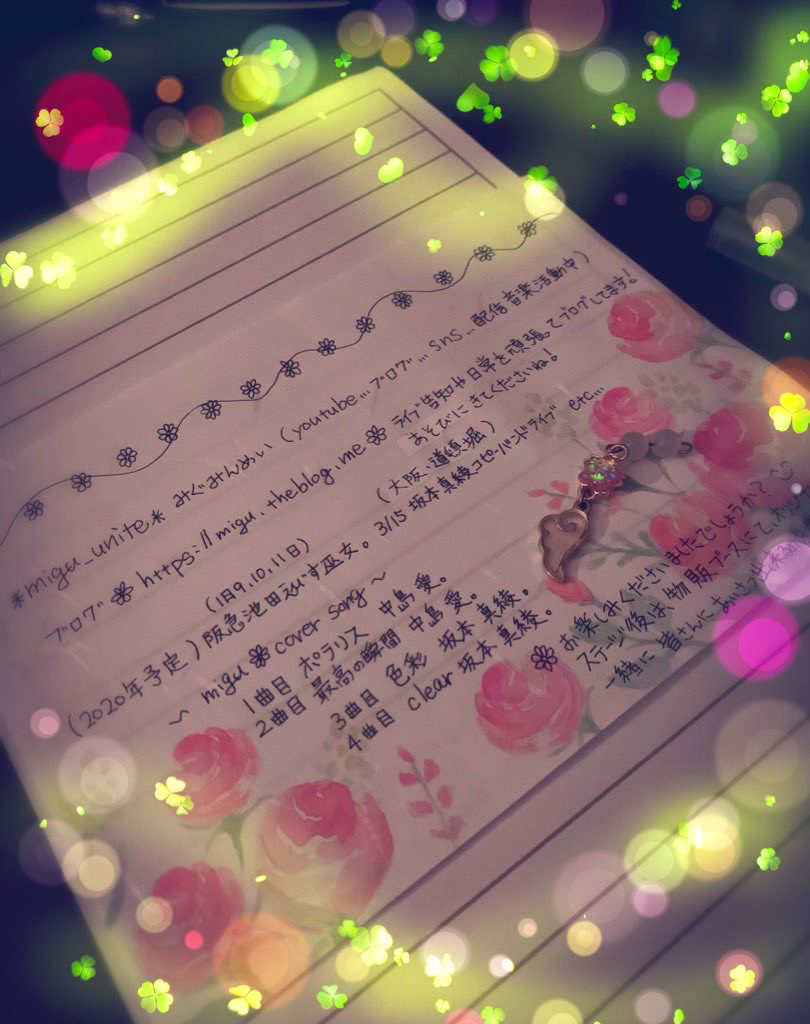 *migu_unite* みぐみんめぃい (youtube...ブログ...sns...配信音楽活動中)
ブログ❀https://migu.theblog.me❀ライブ告知や日常を頑張ってブログしてます!
あそびに きてくださいね!
(1日9.10.11日) (大阪、道頓堀)
(2020年予定)阪急池田えびす巫女。3/15 坂本真綾コピーバンドライブ etc...
~ migu❀cover song ~
1曲目 ポラリス 中島 愛。
2曲目 最高の瞬間 中島 愛。
3曲目 色彩 坂本 真綾。
4曲目 clear 坂本 真綾。
❀お楽しみくださいましたでしょうか?
ステージ後は、物販ブースにて
一緒に 皆さんに